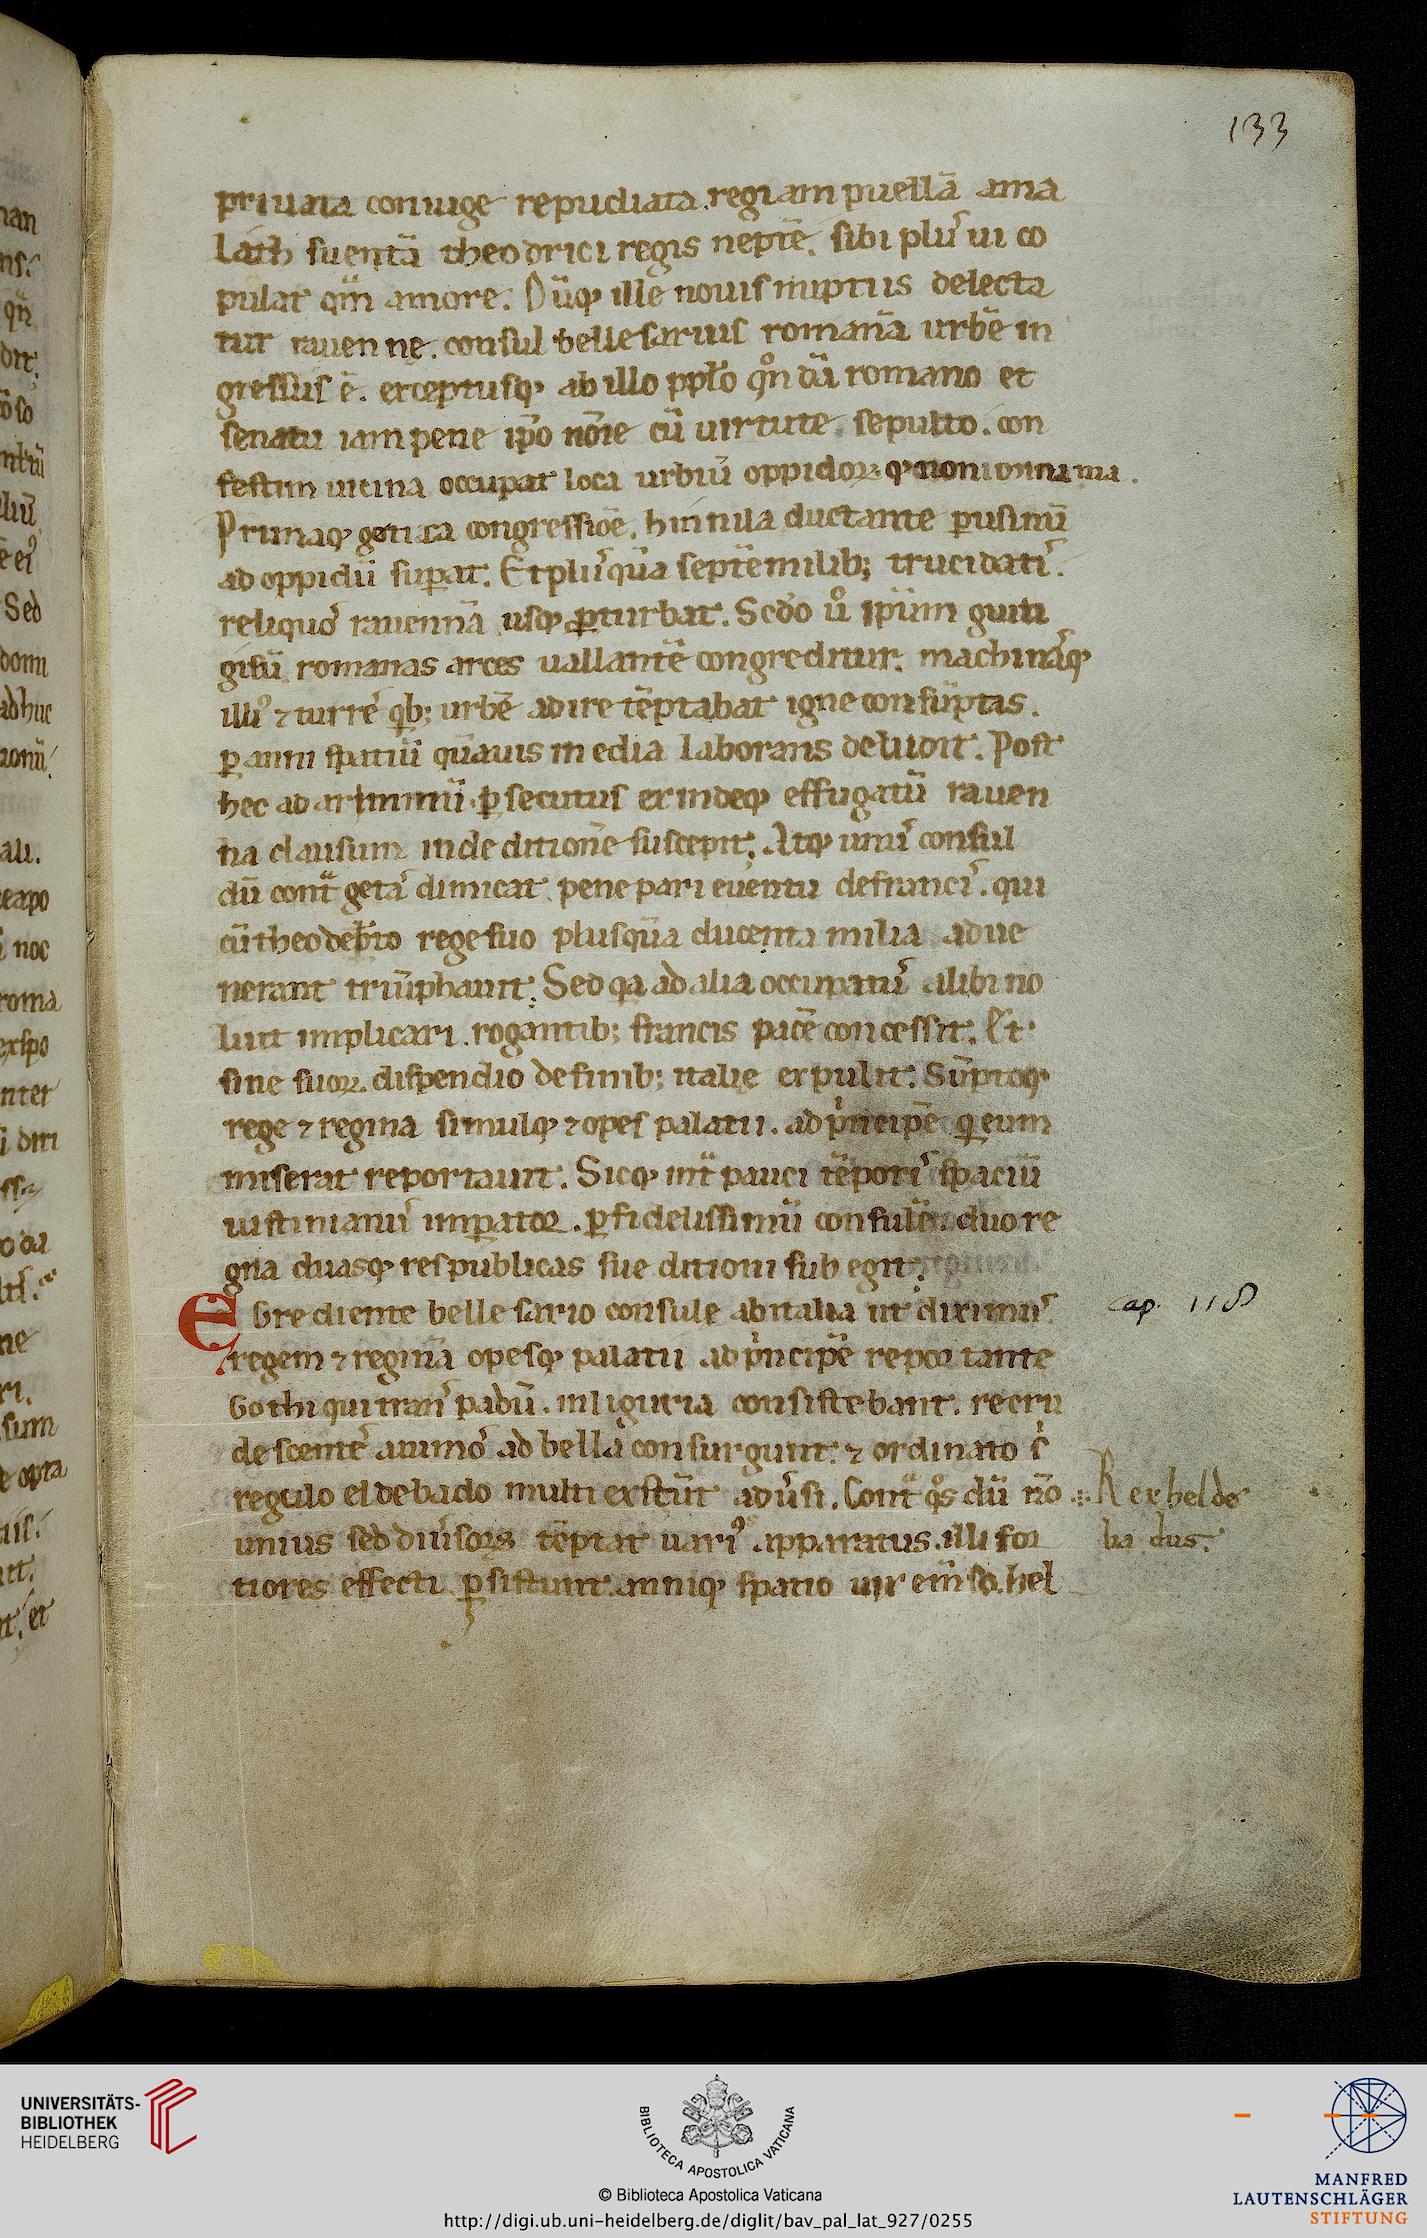 133
priuata coniuge repudiata regiam puellā ama
lath suentā theodorici regis neptē. sibi pluˢ ui co
pulat qm̄ amore. Dūq; ille nouis nuptiis delecta
tur rauenne. consul bellesarius romanā urbē in
gressus ē. exceptusq; ab illo pplo qͦndā romano et
senatu iam pene ipo noīe cū uirtute sepulto. con
festim uicina occupat loca urbiū oppidoꝝ q;
Primaq; gotica congressiōe. hunnila ductante ꝑusinū
ad oppidū suꝑat. Et pluˢ quā septē milib; trucidatiˢ.
reliquoˢ rauennā usq; ꝑturbat. Scdo uͦ ipm̄ guiti
gisū romanas arces uallantē congreditur. machinaˢq;
illiꝰ ⁊ turreˢ qb; urbē adire tēptabat igne consūptas.
ꝑ anni spatiū quāuis inedia laborans deludit. Post
hec ad ariminū ꝑsecutus exindeq; effugatū rauen
na clausum in deditionē suscepit. Atq; unuˢ consul
dū cont̄ getaˢ dimicat pene pari euentu de franciˢ. qui
cū theodeb̄to rege suo plusquā ducenta milia adue
nerant triūphauit. Sed qa ad alia occupatuˢ alibi no
luit implicari. rogantib; francis pacē concessit. Et
sine suoꝝ dispendio de finib; italie expulit. Sūptoq;
rege ⁊ regina simulq; ⁊ opes palatii. ad pͥncipē q eum
miserat reportauit. Sicq; int̄ pauci tēporiˢ spaciū
iustinianuˢ imꝑator. ꝑ fidelissimū consulē. duo re
gna duasq; respublicas sue ditioni subegit.
Egrediente bellesario consule ab italia ut diximuˢ.
cap. 118
regem ⁊ reginā opesq; palatii ad pͥncipē reportante
Gothi qui tranˢ padū. in liguria consistebant. recru
descenteˢ animoˢ ad bella consurgunt. ⁊ ordinato sͥ
regulo eldebado multi existūt aduˢsi. Cont̄ qͦs dū nō
Rex heldo
ba dus.
unius sed diuˢsoꝝ tēptat uariꝰ apparatus. illi for
tiores effecti ꝑsistunt. anniq; spatio uix emēso. hel
UNIVERSITÄTS-
BIBLIOTHEK
HEIDELBERG
BIBLIOTECA APOSTOLICA VATICANA
© Biblioteca Apostolica Vaticana
http://digi.ub.uni-heidelberg.de/diglit/bav_pal_lat_927/0255
MANFRED
LAUTENSCHLÄGER
STIFTUNG